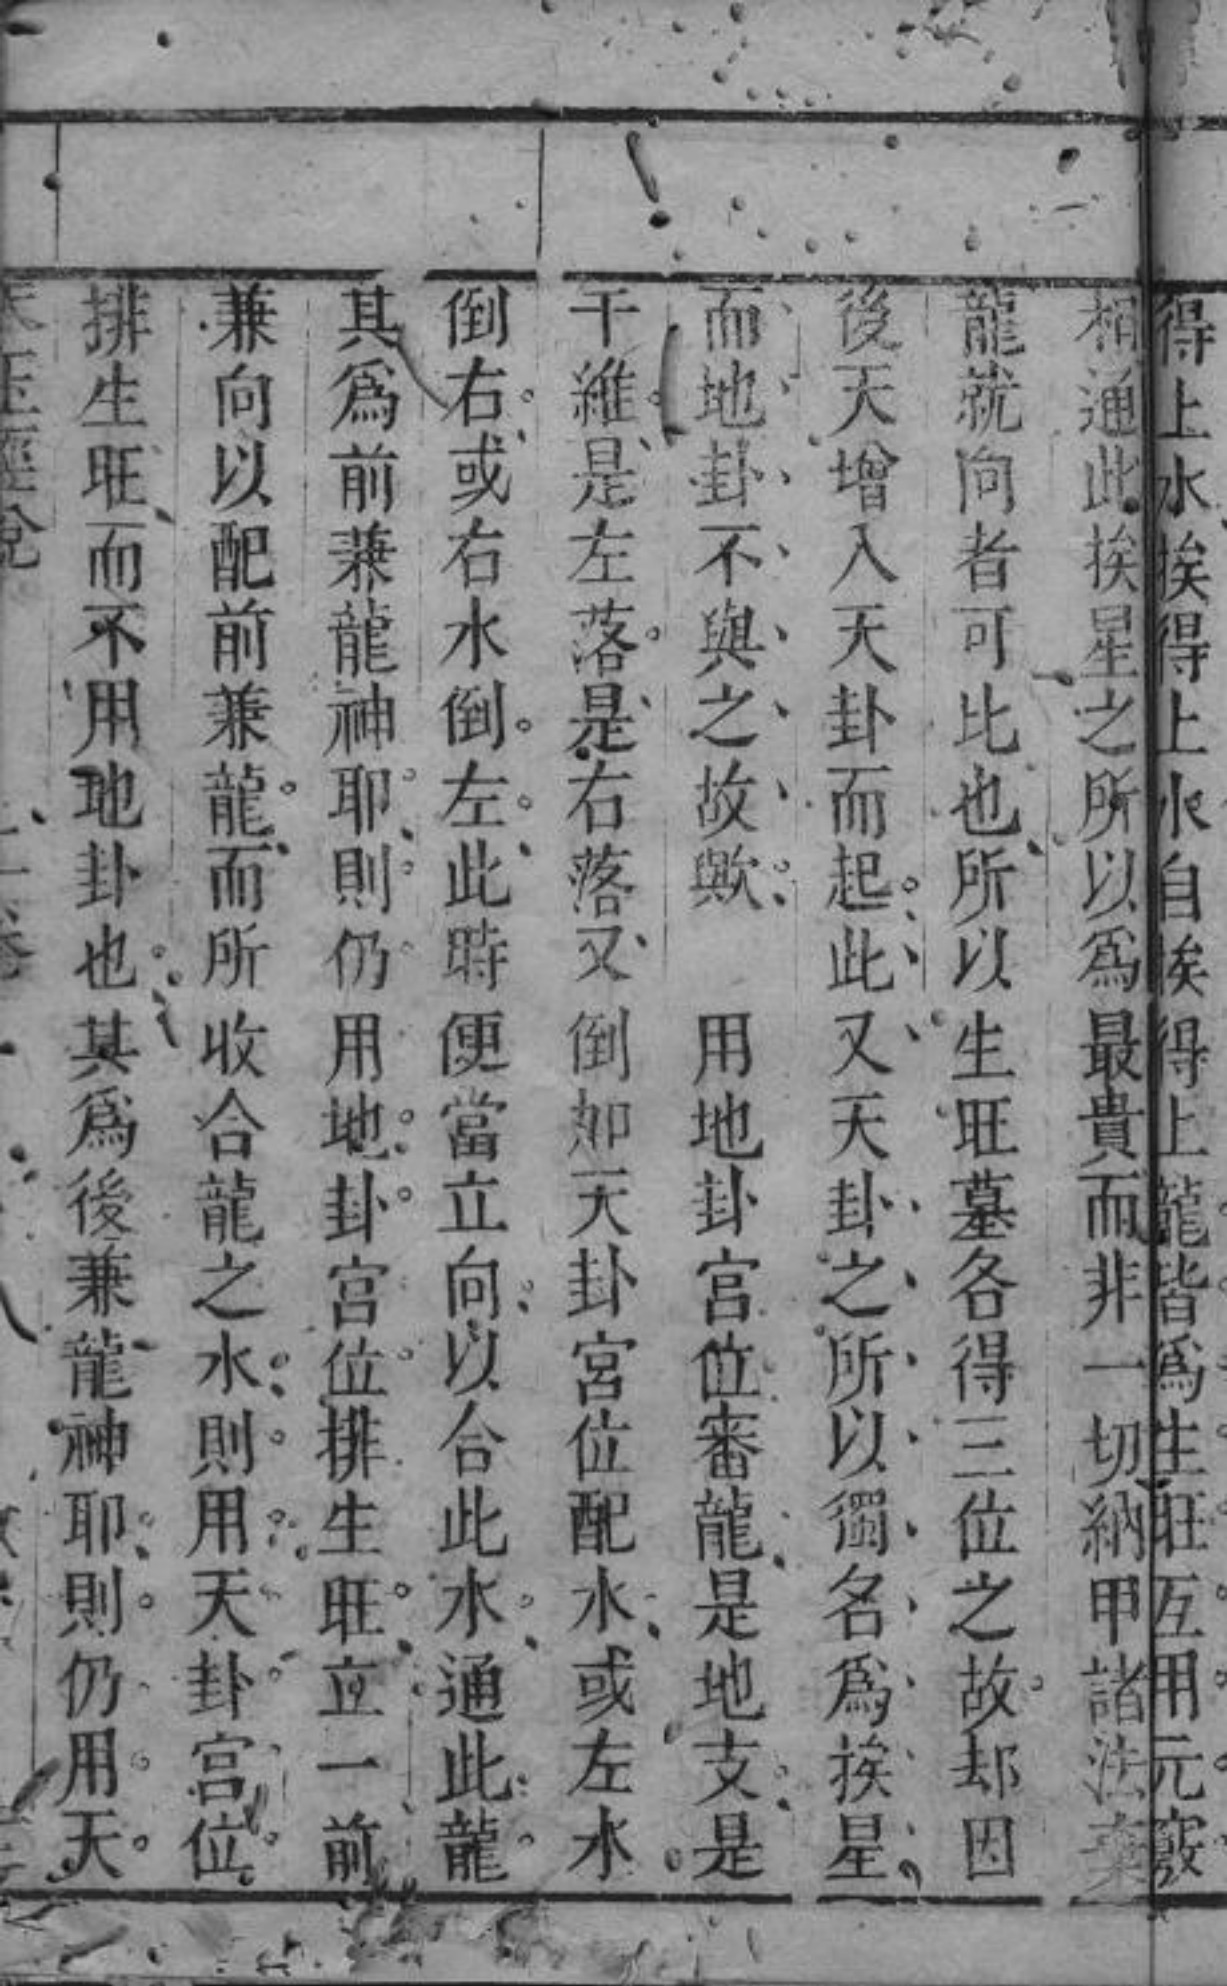 得上水挨得上水自挨得上龍皆爲生旺互用元竅
相通此挨星之所以爲最貴而非一切納甲諸法棄
龍就向者可比也所以生旺墓各得三位之故却因
後天增入天卦而起此又天卦之所以獨名爲挨星
而地卦不與之故歟　用地卦宫位審龍是地支是
干維是左落是右落又倒如天卦宮位配水或左水
倒右或右水倒左此時便當立向以合此水通此龍
其爲前兼龍神耶則仍用地卦宫位排生旺立一前
兼向以配前兼龍而所收合龍之水則用天卦宫位
排生旺而不用地卦也其爲後兼龍神耶則仍用天
天玉經說